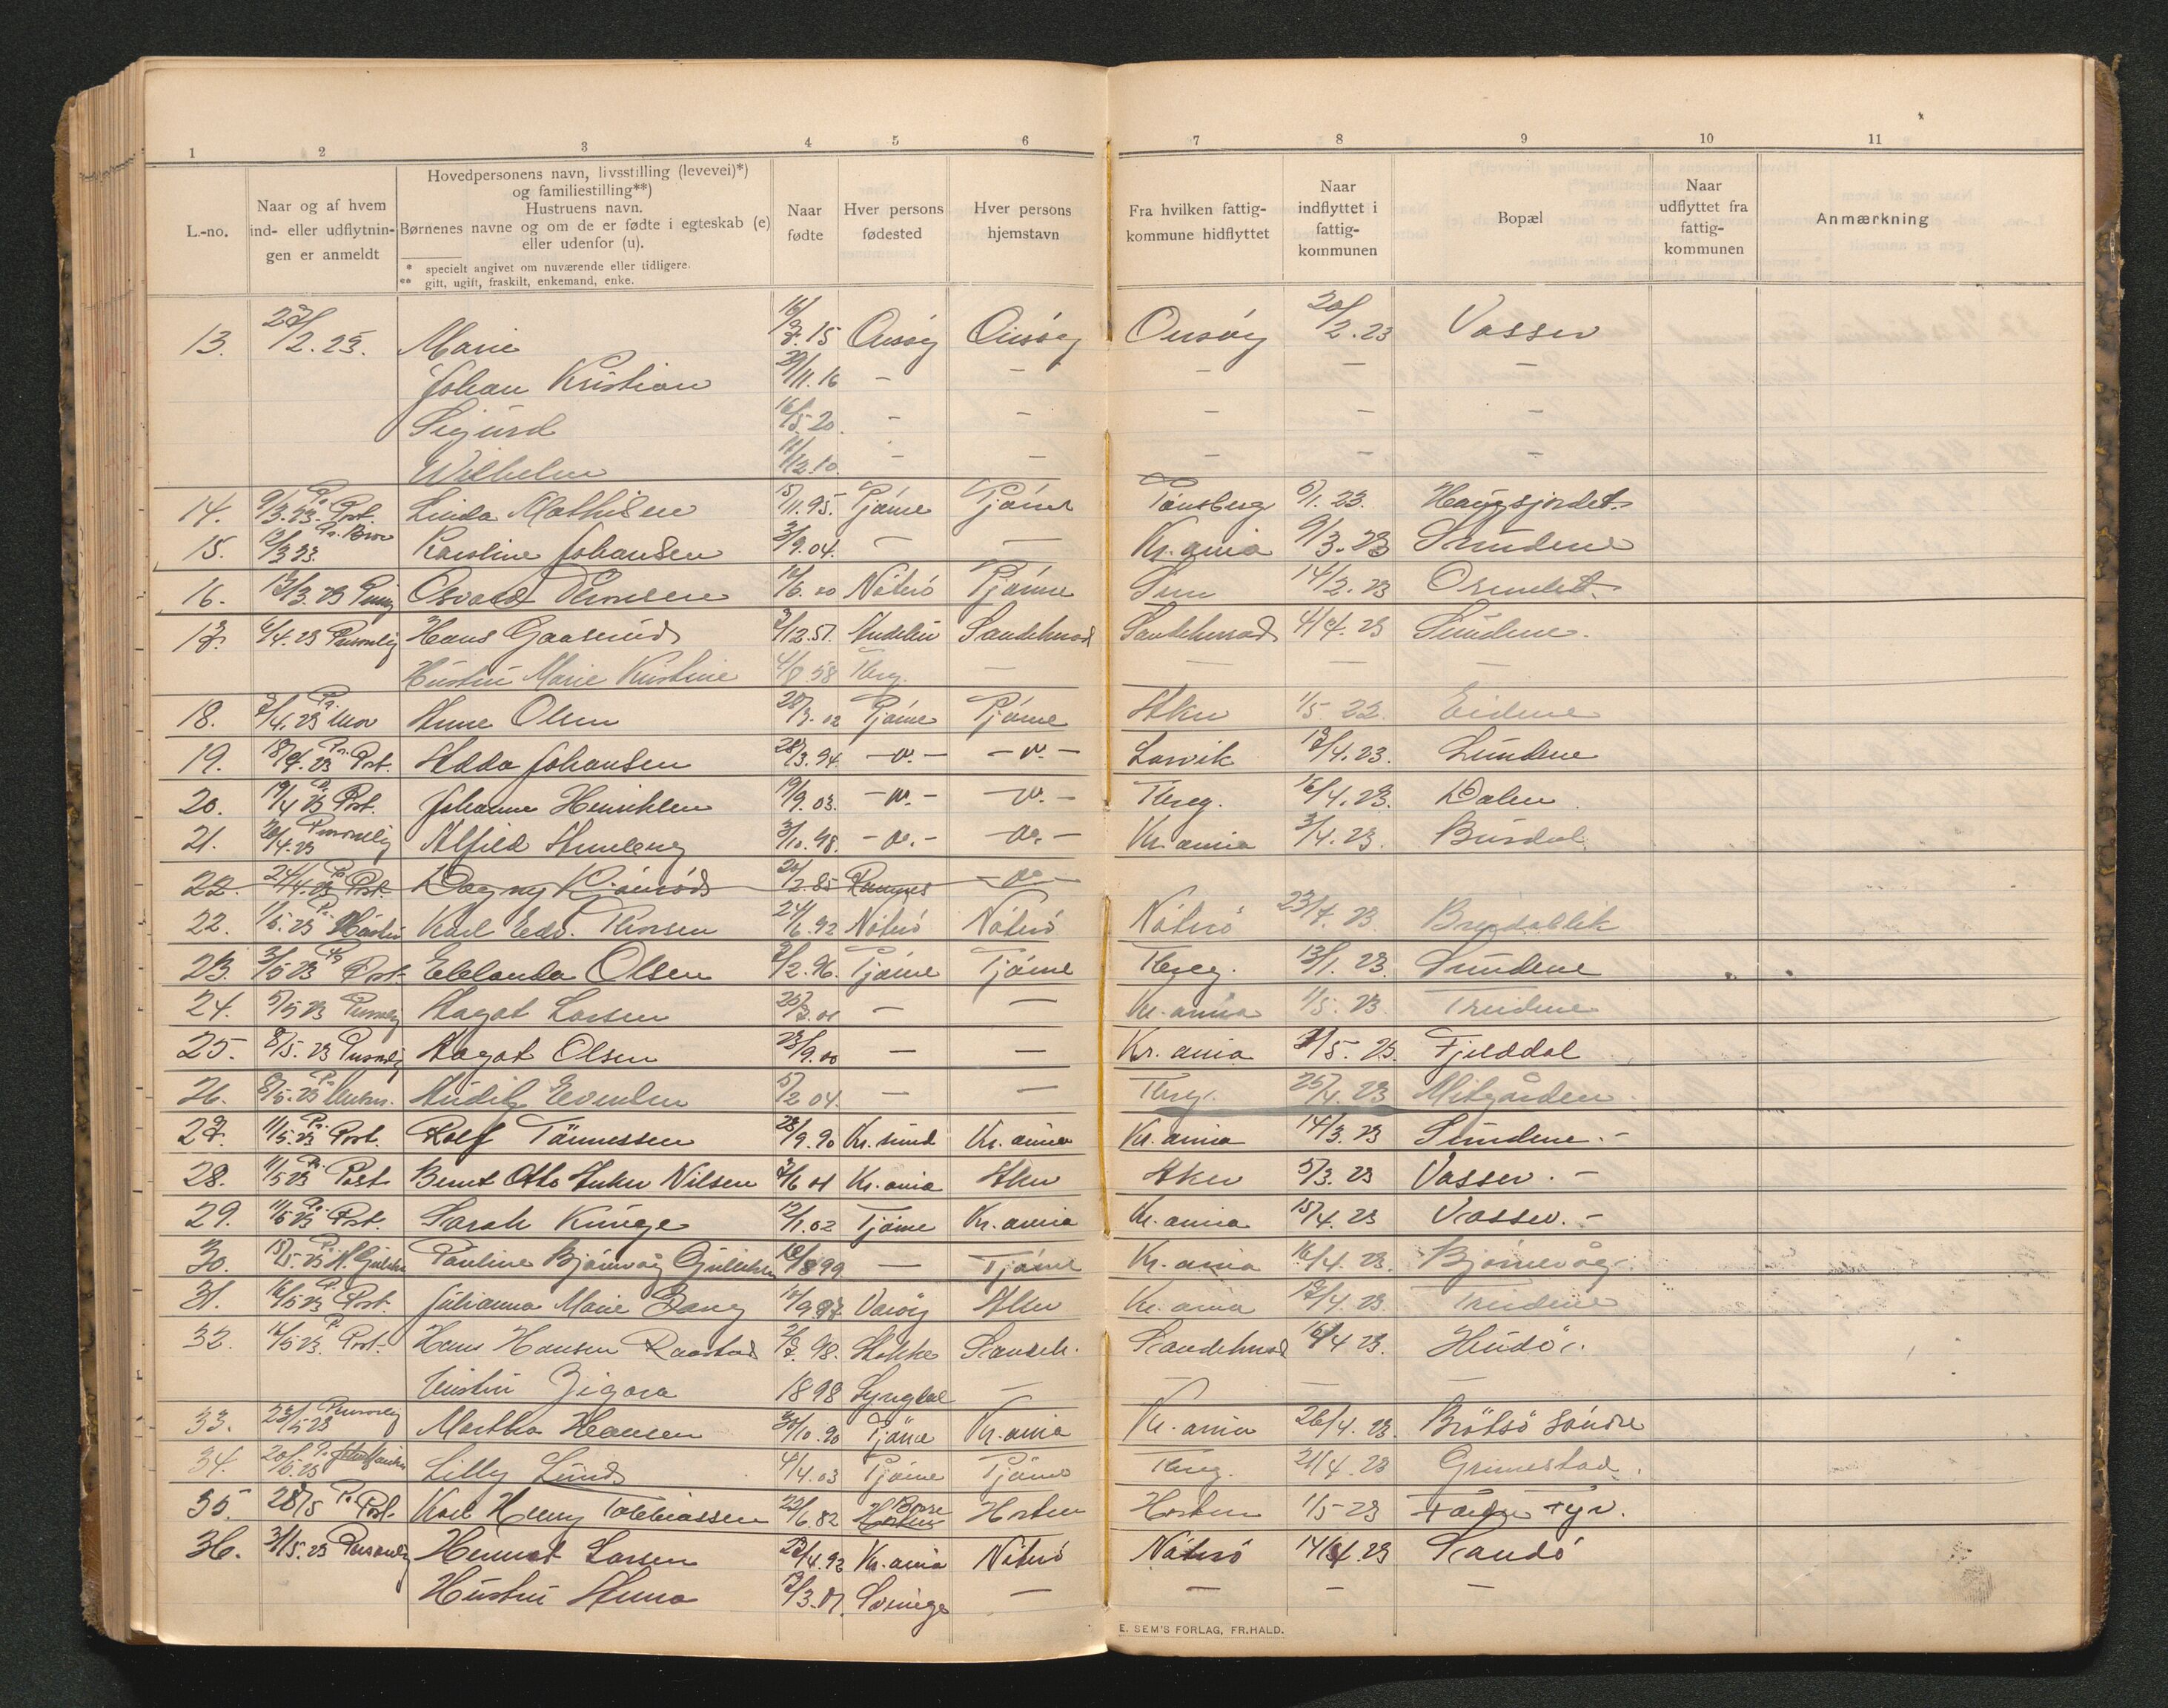 1 2 3 4 5 6 7 8 9 10 11
L.-no.
Naar og af hvem
ind- eller udflytnin-
gen er anmeldt
Hovedpersonens navn, livsstilling (levevei)*)
og familiestilling**)
Hustruens navn.
Børnenes navne og om de er fødte i egteskab (e)
eller udenfor (u).
* specielt angivet om nuværende eller tidligere.
** gift, ugift, fraskilt, enkemand, enke.
Naar
fødte
Hver persons
fødested
Hver persons
hjemstavn
Fra hvilken fattig-
kommune hidflyttet
Naar
indflyttet i
fattig-
kommunen
Bopæl
Naar
udflyttet fra
fattig-
kommunen
Anmærkning
13. Marie Onsøy Onsøy Onsøy 20/2.23 Vasser
Johan Kristian 11.16 - - - - -
Sigurd 16/5.20 - - - - -
Wilhelm - - - - -
14. 9/3.23. Pr. Post. Linda Mathisen 5/11.95. Tjøme Tjøme Tønsberg 5/1.23. Haugsjordet
15. 12/3 23. Pr. Brev Karoline Johansen 3/9.04. - - Kr.ania 9/3.23 Sundene
16. Osvald Nøterø Tjøme Sem 14/2.23 Ormelet
17. 6/4.23 Personlig Hans Gaaserud 12.51. Sandeherred Sandeherred 4/4.23 Sundene.
Hustru Marie Kristine 4/8 58 Tbrg. - - - -
18. 7/4.23 Pr. Anne Olsen 02 Tjøme Tjøme Aker 1/5.22. Eidene
19. 18/4.23 Pr. Post. Hilda Johansen 28/3.94 -"- -"- Larvik 17/4.23. Sundene
20. 19/4 23 Pr. Post. Johanne Henriksen 19/9.03. -"- -"- Tbrg. 16/4.23. Dalen
21. 20/4.23 Personlig Alfild 3/10.98. -"- -"- Kr.ania 3/4.23. Burdal
22. 24/4.23 Pr. Post. Dagny 2.85 Ramnes -"-
22. 1/5.23 Pr. Hustru Karl Edv. Thorsen 24/6.92 Nøterø Nøterø Nøterø 23/4.23 Breidablik
23. 3/5 23 Pr. Post. Ellanda Olsen 2.96. Tjøme Tjøme Tbrg. 13/1.23. Sundene
24. 5/5 23 Personlig Aagot Larsen - - Kr.ania 1/5.23.
25. 8/5.23 Personlig Aagot Olsen 23/9.00 - - Kr.ania 5.23 Fjelddal
26. 8/5.23 Pr. Evensen 5/2 04. - - Tbrg. 25/4.23 Mitgården.
27. 11/5.23 Pr. Post. Rolf Tønnessen 28/9.90 Kr.sund Kr.ania Kr.ania 14/3.23 Sundene.-
28. 11/5 23 Pr. Post. Bernt Otto Anker Nilsen Kr.ania Aker Aker 5/3.23 Vasser.-
29. 11/5 23 Pr. Post. Sarah Kunge 12/1.02 Tjøme Kr.ania Kr.ania 15/4.23 Vasser.-
30. 15/5.23 Pr. Pauline Bjørnvåg Gulliksen 8 99 - Tjøme Kr.ania 16/4.23. Bjørnevåg.
31. 16/5 23 Pr. Post. Julianna Marie Varøy Aker Kr.ania 17/4.23
32. 16/5 23. Pr. Post. Hans Hansen Raastad 98. Stokke Sandeh. Sandeherred 16/4 23. Hudø.
Hustru 1898 Lyngdal - - - -
33. 23/5 23 Personlig Martha Hansen 30/10.90 Tjøme Kr.ania Kr.ania 26/4.23. Brøtsø søndre
34. Lilly Lunds 4/4.03 Tjøme Tjøme Tbrg. 21/4.23 Grimestad.
35. 28/5 Pr. Post. Karl Henry Tobbiassen 22/6.82 Borre Horten Horten Horten 1/5 23 Færder Fyr.
36. 31/5.23 Personlig Helmut Larsen 23/4.92 Kr.ania Nøterø Nøterø 14/4.23 Sandø
Hustru Anna - - - -
E. SEM'S FORLAG, FR.HALD.